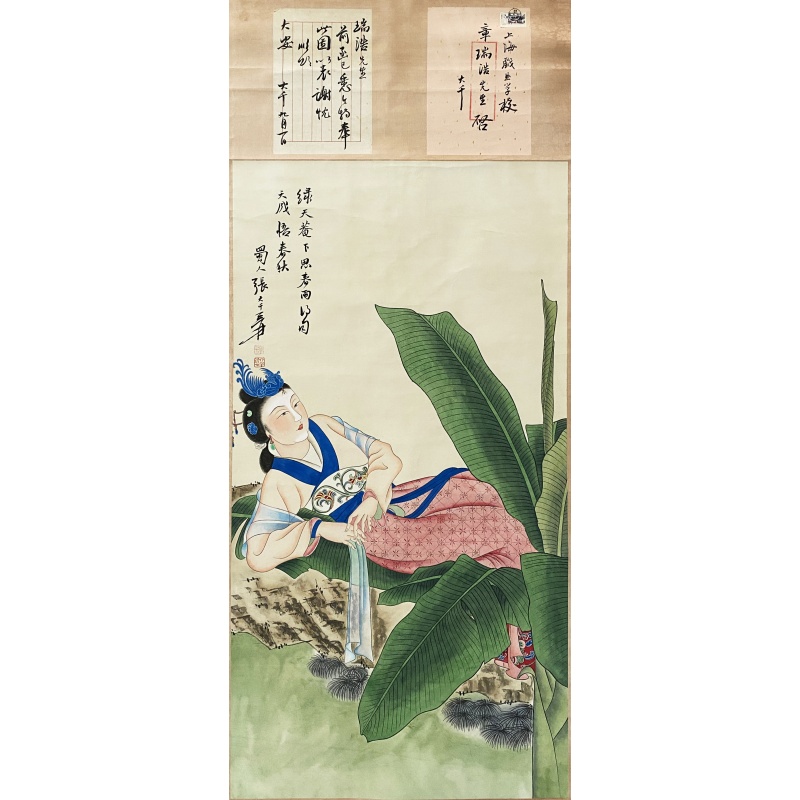 上海戲劇學校
章瑞浩先生 啓
大千
瑞浩先生
前函已悉今特奉
此圖以表謝忱
此頌
大安
大千九月一日
綠天菴下思春雨得句
天成悟春秋
蜀人張大千爰